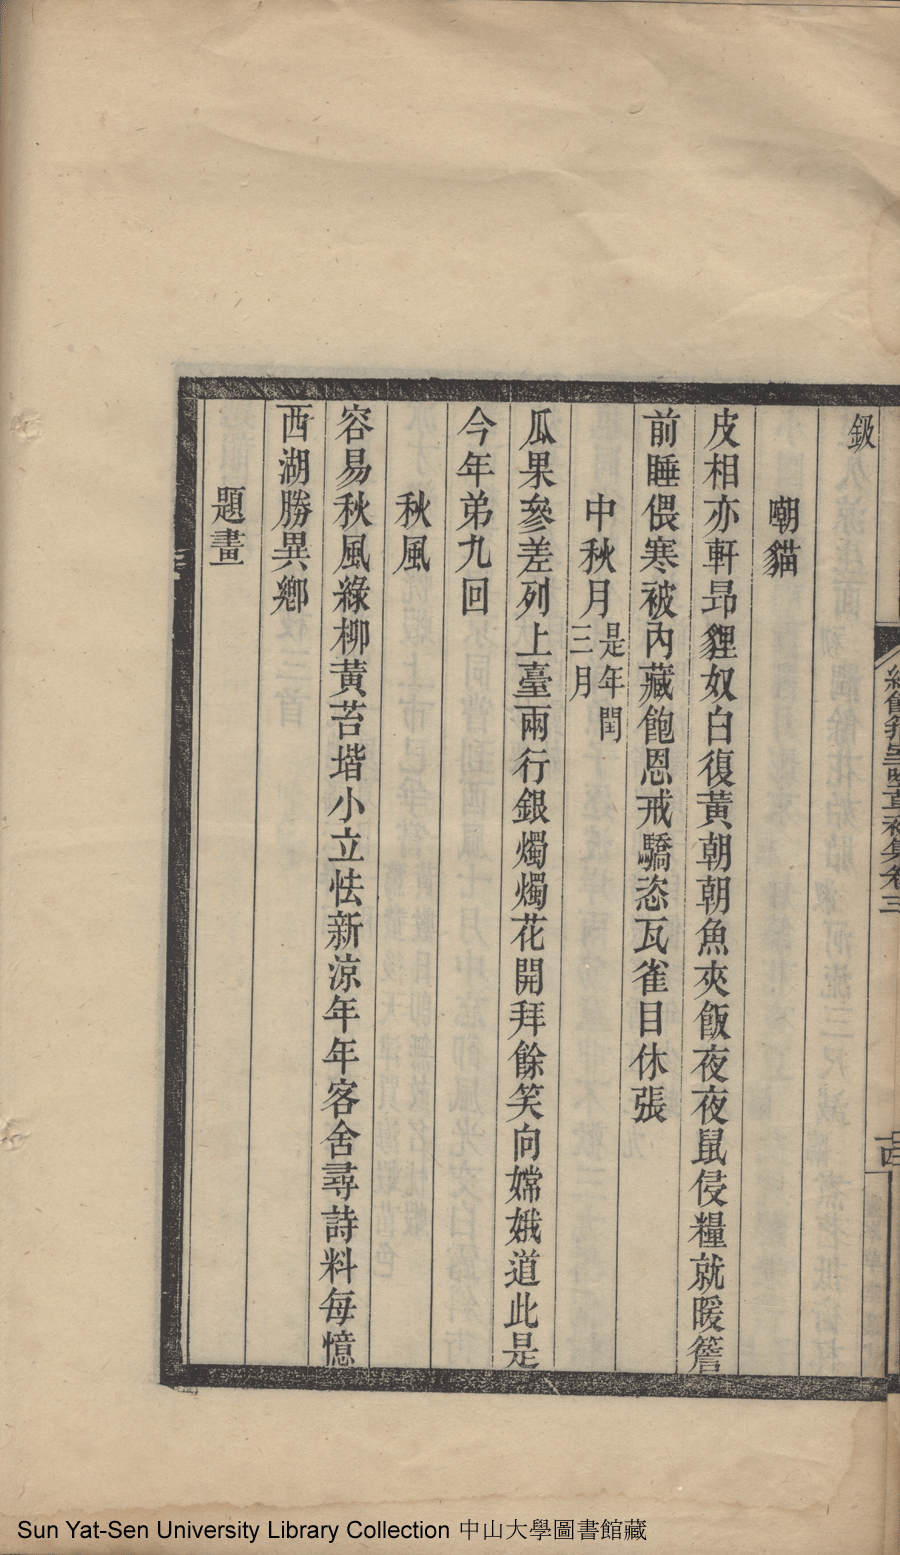 鈒
嘲貓
皮相亦軒昻貍奴白復黃朝朝魚夾飯夜夜鼠侵糧就暖簷
前睡偎寒被內藏飽恩戒驕恣瓦雀目休張
中秋月是年閏三月
瓜果參差列上臺兩行銀燭燭花開拜餘笑向嫦娥道此是
今年弟九回
秋風
容易秋風綠柳黃苔堦小立怯新涼年年客舍尋詩料每憶
西湖勝異鄉
題畫
卷三
十四
Sun Yat-Sen University Library Collection 中山大學圖書館藏